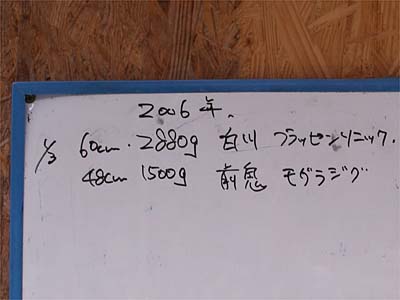 2006年.
1/3 60cm・2880g 白川 フラッピンソニック.
48cm 1500g 前鬼 モグラジグ